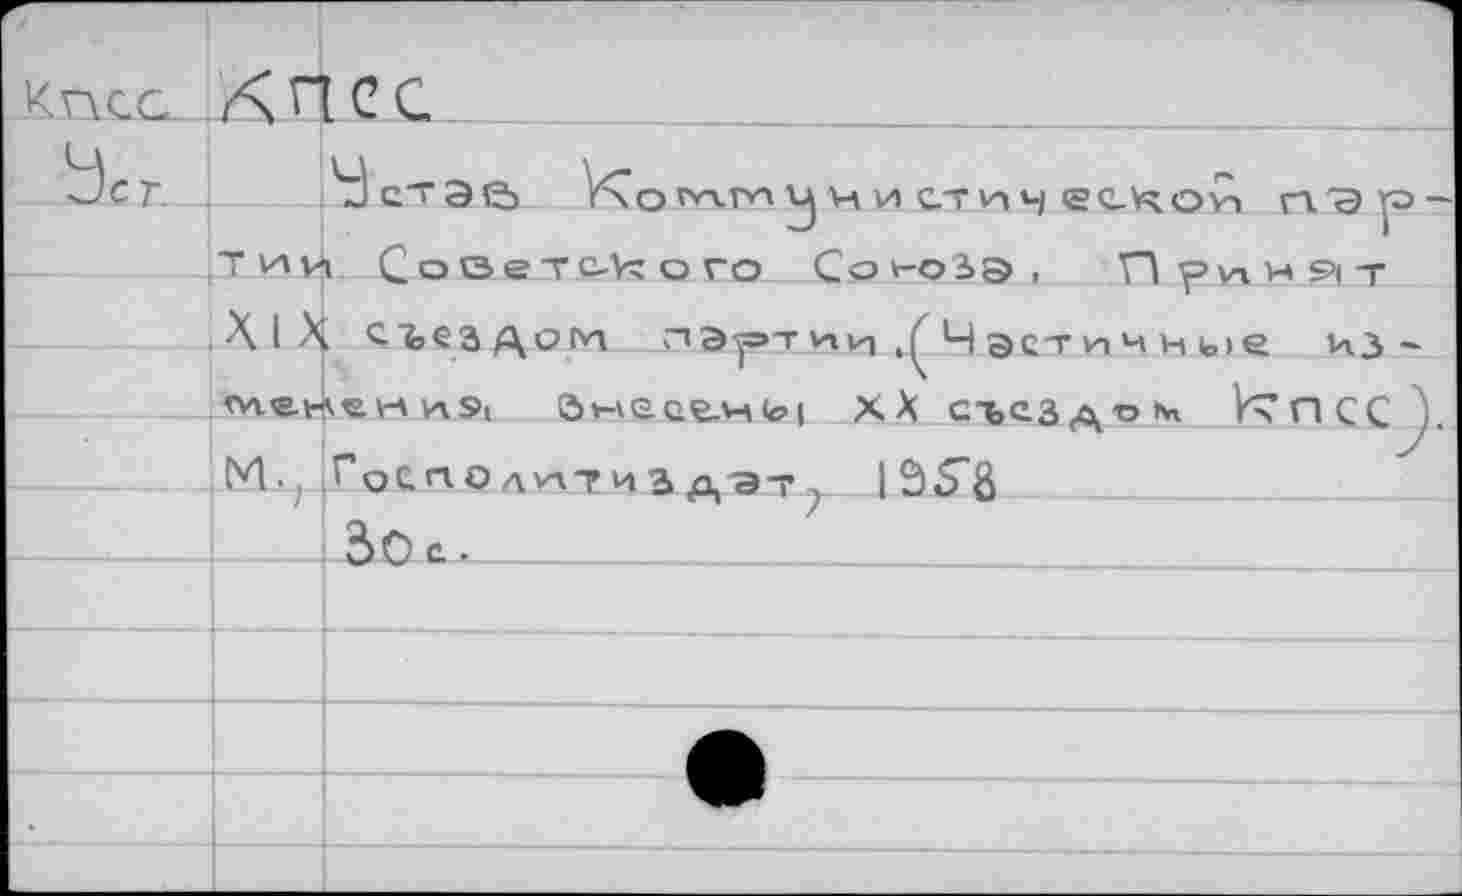 Кпсс КПСС
Уст Устав Коммунистической пар-
тии Советского Союза. Принят
XIX съездом партии. (Частичные из-
менения внесены XX съездом КПСС).
М., Госполитиздат, 1958
30 с.